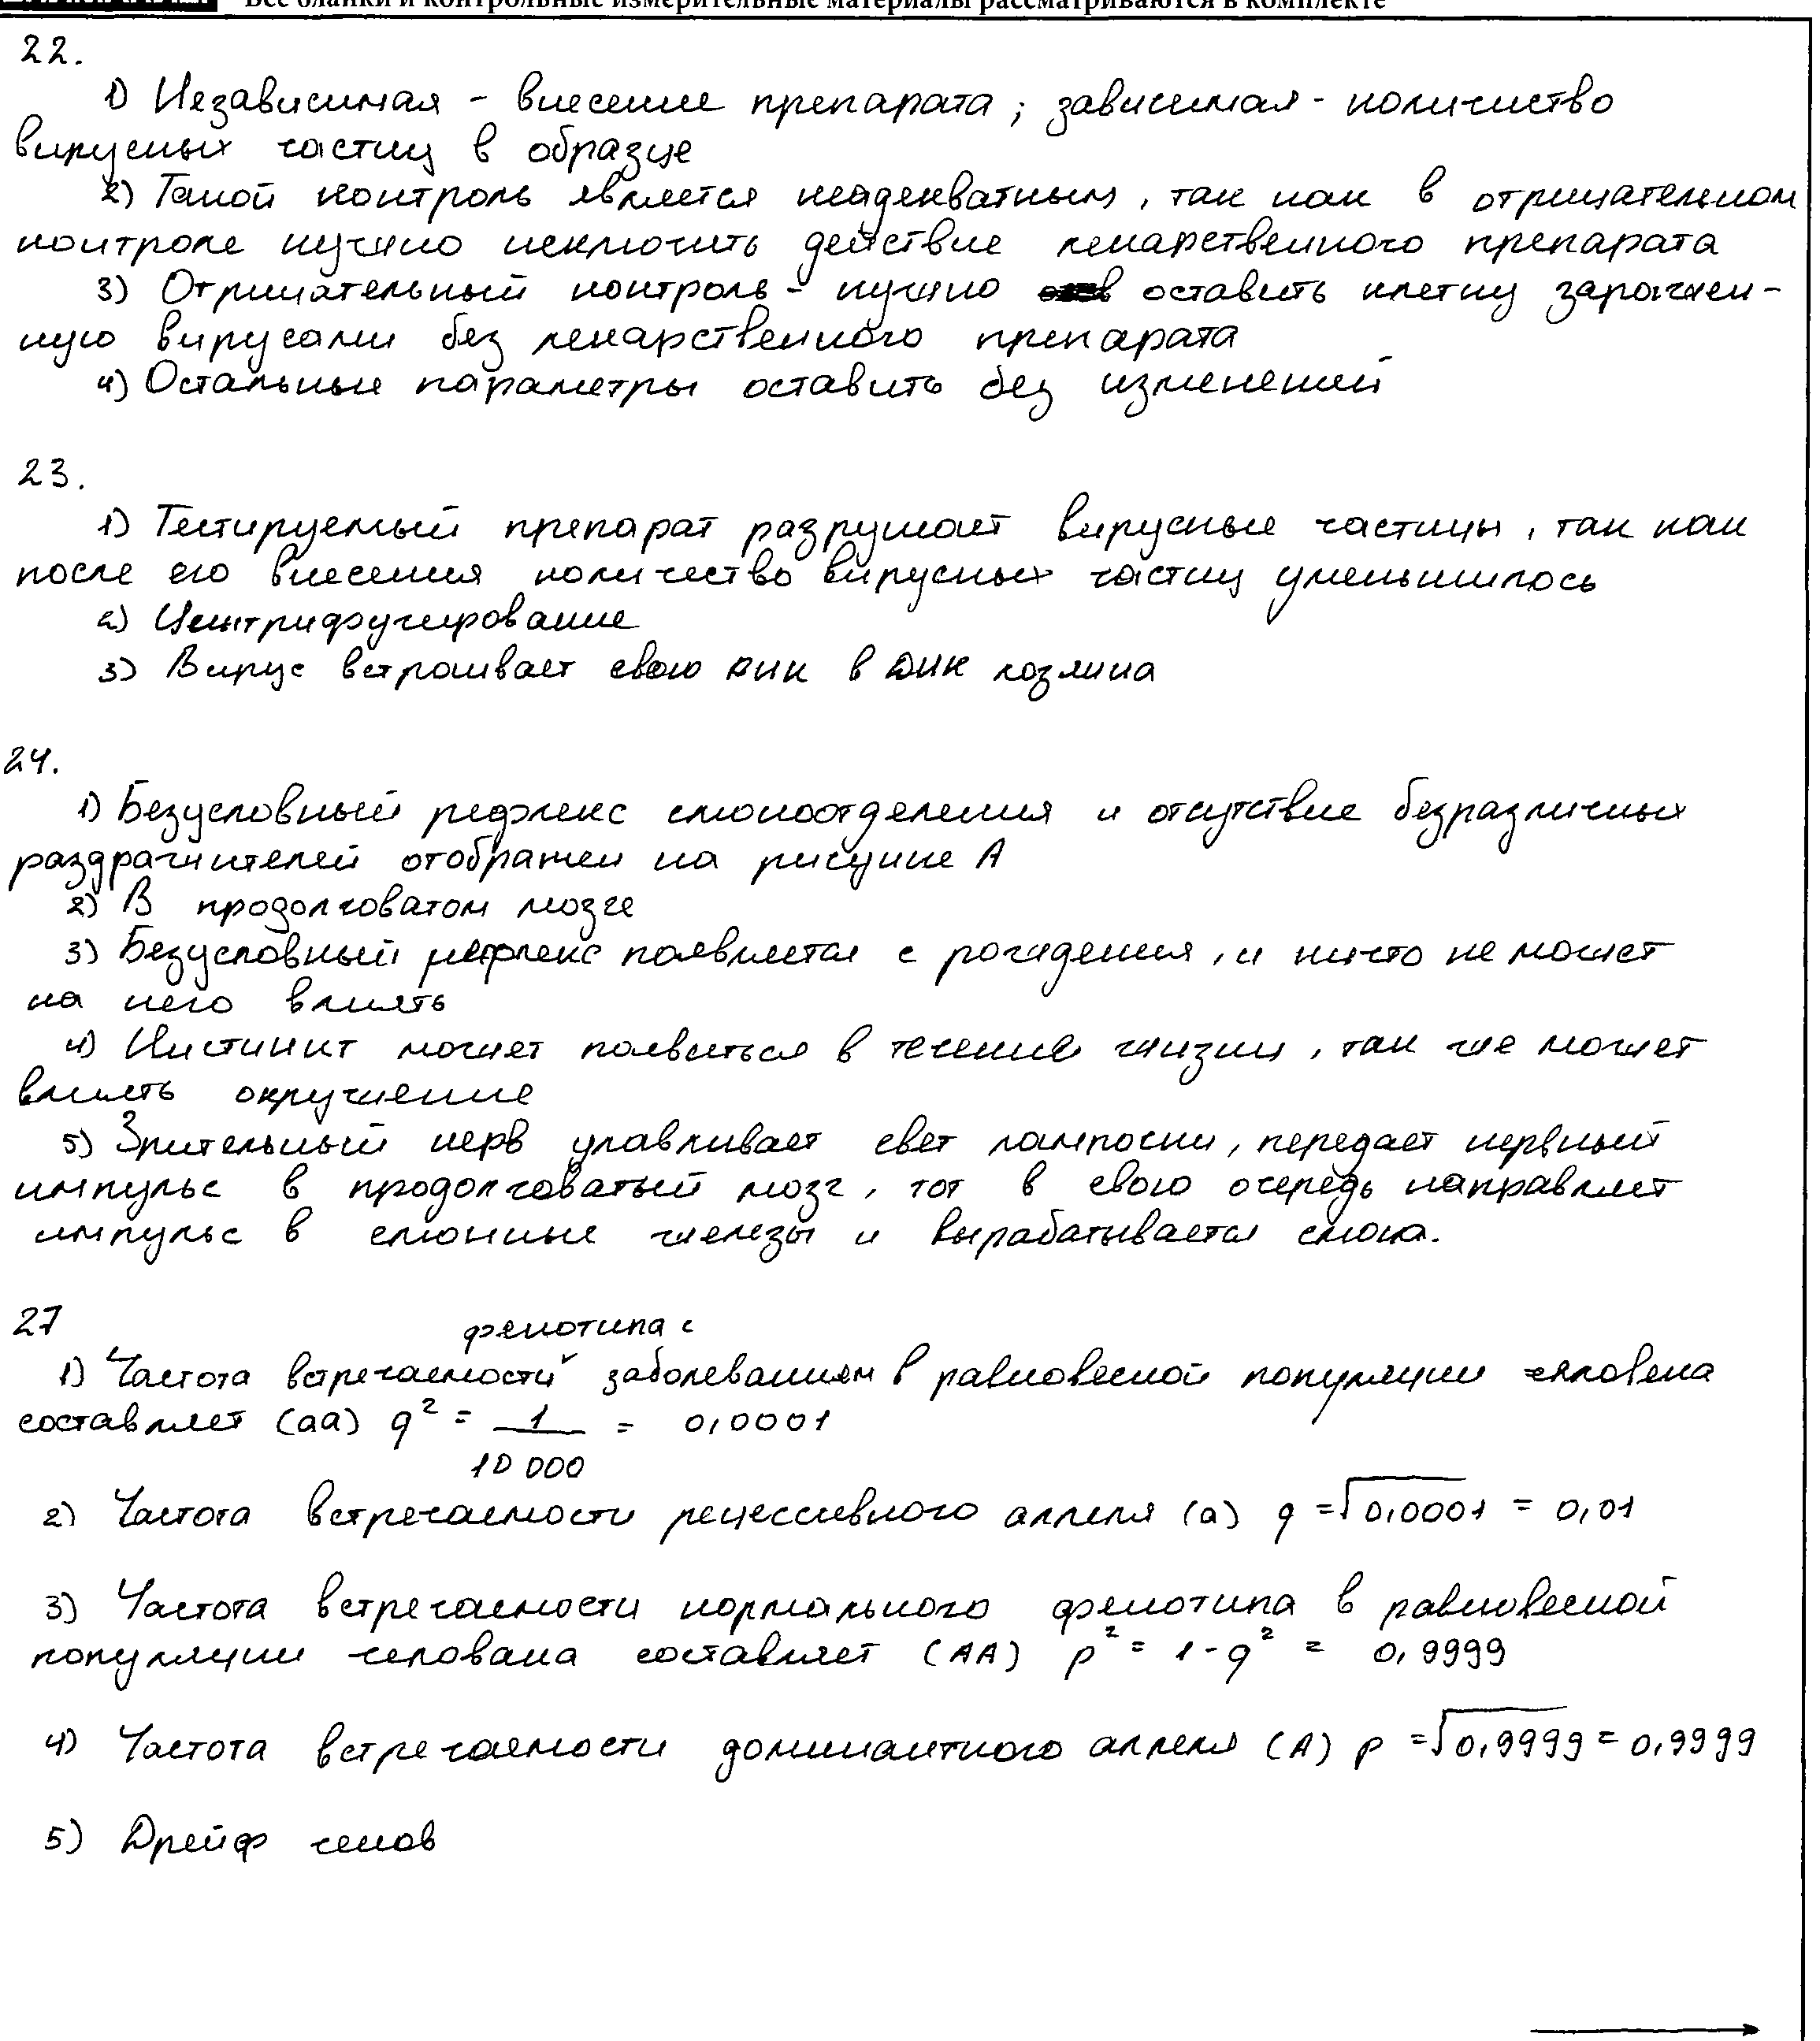 Все бланки и контрольные измерительные материалы рассматриваются в комплекте
22.
1) Независимая - внесение препарата ; зависимая - количество
вирусных частиц в образце
2) Такой контроль является неадекватным, так как в отрицательном
контроле нужно исключить действие лекарственного препарата
3) Отрицательный контроль - нужно оставить клетку заражен-
ную вирусами без лекарственного препарата
4) Остальные параметры оставить без изменений
23.
1) Тестируемый препарат разрушает вирусные частицы, так как
после его внесения количество вирусных частиц уменьшилось
2) Центрифугирование
3) Вирус встраивает свою ДНК в ДНК хозяина
24.
1) Безусловный рефлекс слюноотделения и отсутствие безразличных
раздражителей отображен на рисунке А
2) В продолговатом мозге
3) Безусловный рефлекс появляется с рождения, и ничто не может
на него влиять
4) Инстинкт может появиться в течение жизни, так же может
влиять окружение
5) Зрительный нерв улавливает свет лампочки, передает нервный
импульс в продолговатый мозг, тот в свою очередь направляет
импульс в слюнные железы и вырабатывается слюна.
27
фенотипа с
1) Частота встречаемости заболеванием в равновесной популяции человека
составляет (аа) q² = 1/10 000 = 0,0001
2) Частота встречаемости рецессивного аллеля (а) q = √0,0001 = 0,01
3) Частота встречаемости нормального фенотипа в равновесной
популяции человека составляет (АА) p² = 1 - q² = 0,9999
4) Частота встречаемости доминантного аллеля (А) p = √0,9999 = 0,9999
5) Дрейф генов